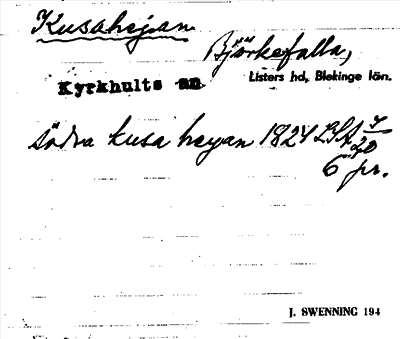 Kusahejan
Björkefalla,
Kyrkhults sn
Listers hd, Blekinge län.
södra kusa heyan 1824 LSA 7/20
6 pr.
J. SWENNING 194